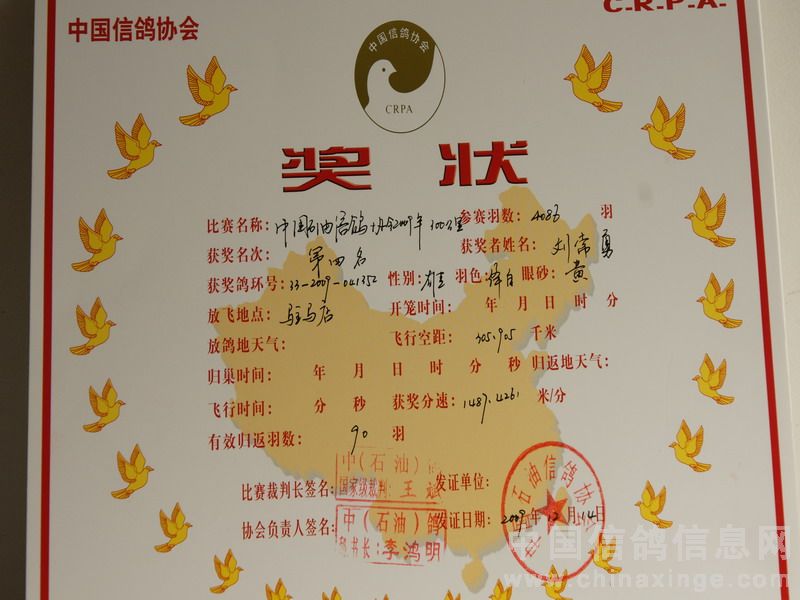 C-R-P-A-
中国信鸽协会
中国信鸽协会
CRPA
奖 状
比赛名称：中国石油信鸽协会2009年300公里 参赛羽数：4086 羽
获奖名次：第四名 获奖者姓名：刘常勇
获奖鸽环号：33-2009-041352 性别：雄 羽色：绛白 眼砂：黄
放飞地点：驻马店 开笼时间： 年 月 日 时 分
放鸽地天气： 飞行空距：305.905 千米
归巢时间： 年 月 日 时 分 秒 归返地天气：
飞行时间： 分 秒 获奖分速：1487.4261 米/分
有效归返羽数：90 羽
中（石油）
比赛裁判长签名： 国家级裁判：王 发证单位：
中（石油）鸽
协会负责人签名： 秘书长：李鸿明 发证日期：2009年12月14日
石油信鸽协
中国信鸽信息网
www.chinaxinge.com